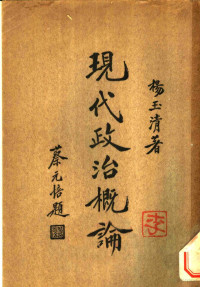 楊玉清著
現代政治概論
蔡元培題
李